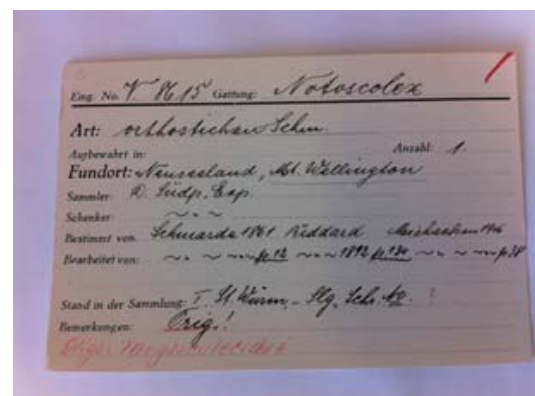 Eing. No. V 8615 Gattung: Notoscolex
Art: orthostichon Schm.
Aufbewahrt in: Anzahl: 1.
Fundort: Neuseeland, Mt. Wellington
Sammler: D. Südp. Exp.
Schenker: ~ ~ ~
Bestimmt von: Schmarda 1861 Michaelsen 1916
Bearbeitet von: p. 12 1892 p. 130
Stand in der Sammlung: T. St. Würm.
Bemerkungen: Orig.!